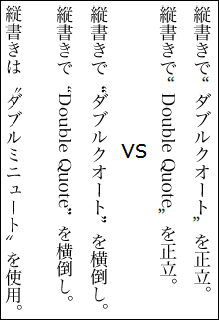 縦書きで“ダブルクオート”を正立。
縦書きで“Double Quote”を正立。
VS
縦書きで“ダブルクオート”を横倒し。
縦書きで“Double Quote”を横倒し。
縦書きは〝ダブルミニュート〟を使用。